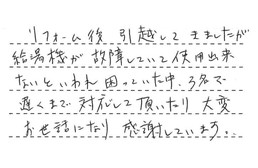 リフォーム後 引越して きましたが
給湯機が 故障していて 使用出来
ないといわれ 困っていた中、3名で
遅くまで 対応して頂いたり 大変
お世話になり 感謝しています。